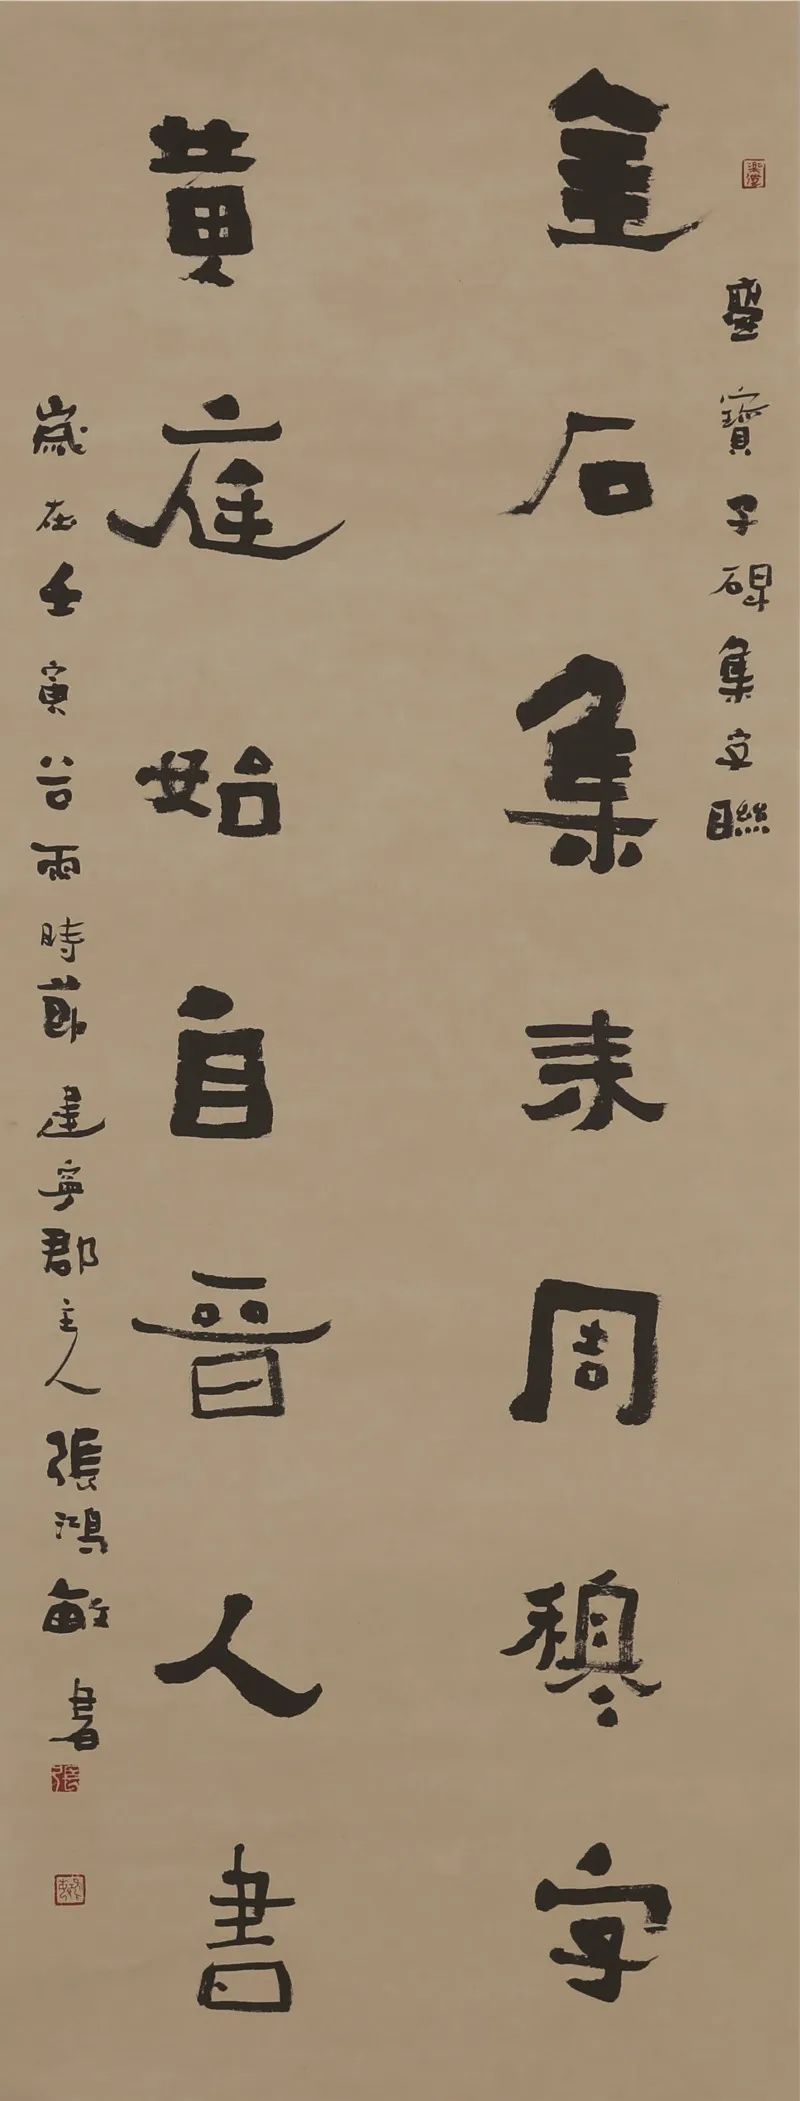 爨寶子碑集字聯
金石集来周穆字
黄庭始自晋人書
歲在壬寅谷雨時節建寧郡主人張鴻敏書
張